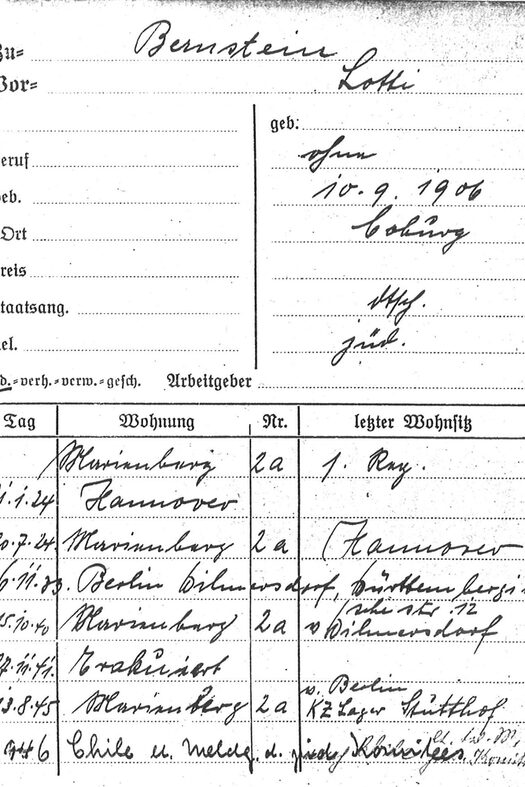 Zu= Bernstein
Vor= Lotti
geb:
eruf ohne
eb. 10.9.1906
Ort Coburg
reis
taatsang. dtsch.
el. jüd.
d.=verh.=verw.=gesch. Arbeitgeber
Tag Wohnung Nr. letzter Wohnsitz
Marienberg 2a 1. Reg.
1.1.24 Hannover
20.7.24. Marienberg 2a Hannover
11.33. Berlin Wilmersdorf, Württembergi
sche str. 12
15.10.40 Marienberg 2a v Wilmersdorf
27.11.41. Evakuiert
v. Berlin
13.8.45 Marienberg 2a KZ Lager Stutthof
46 Chile u. Meldg. d.